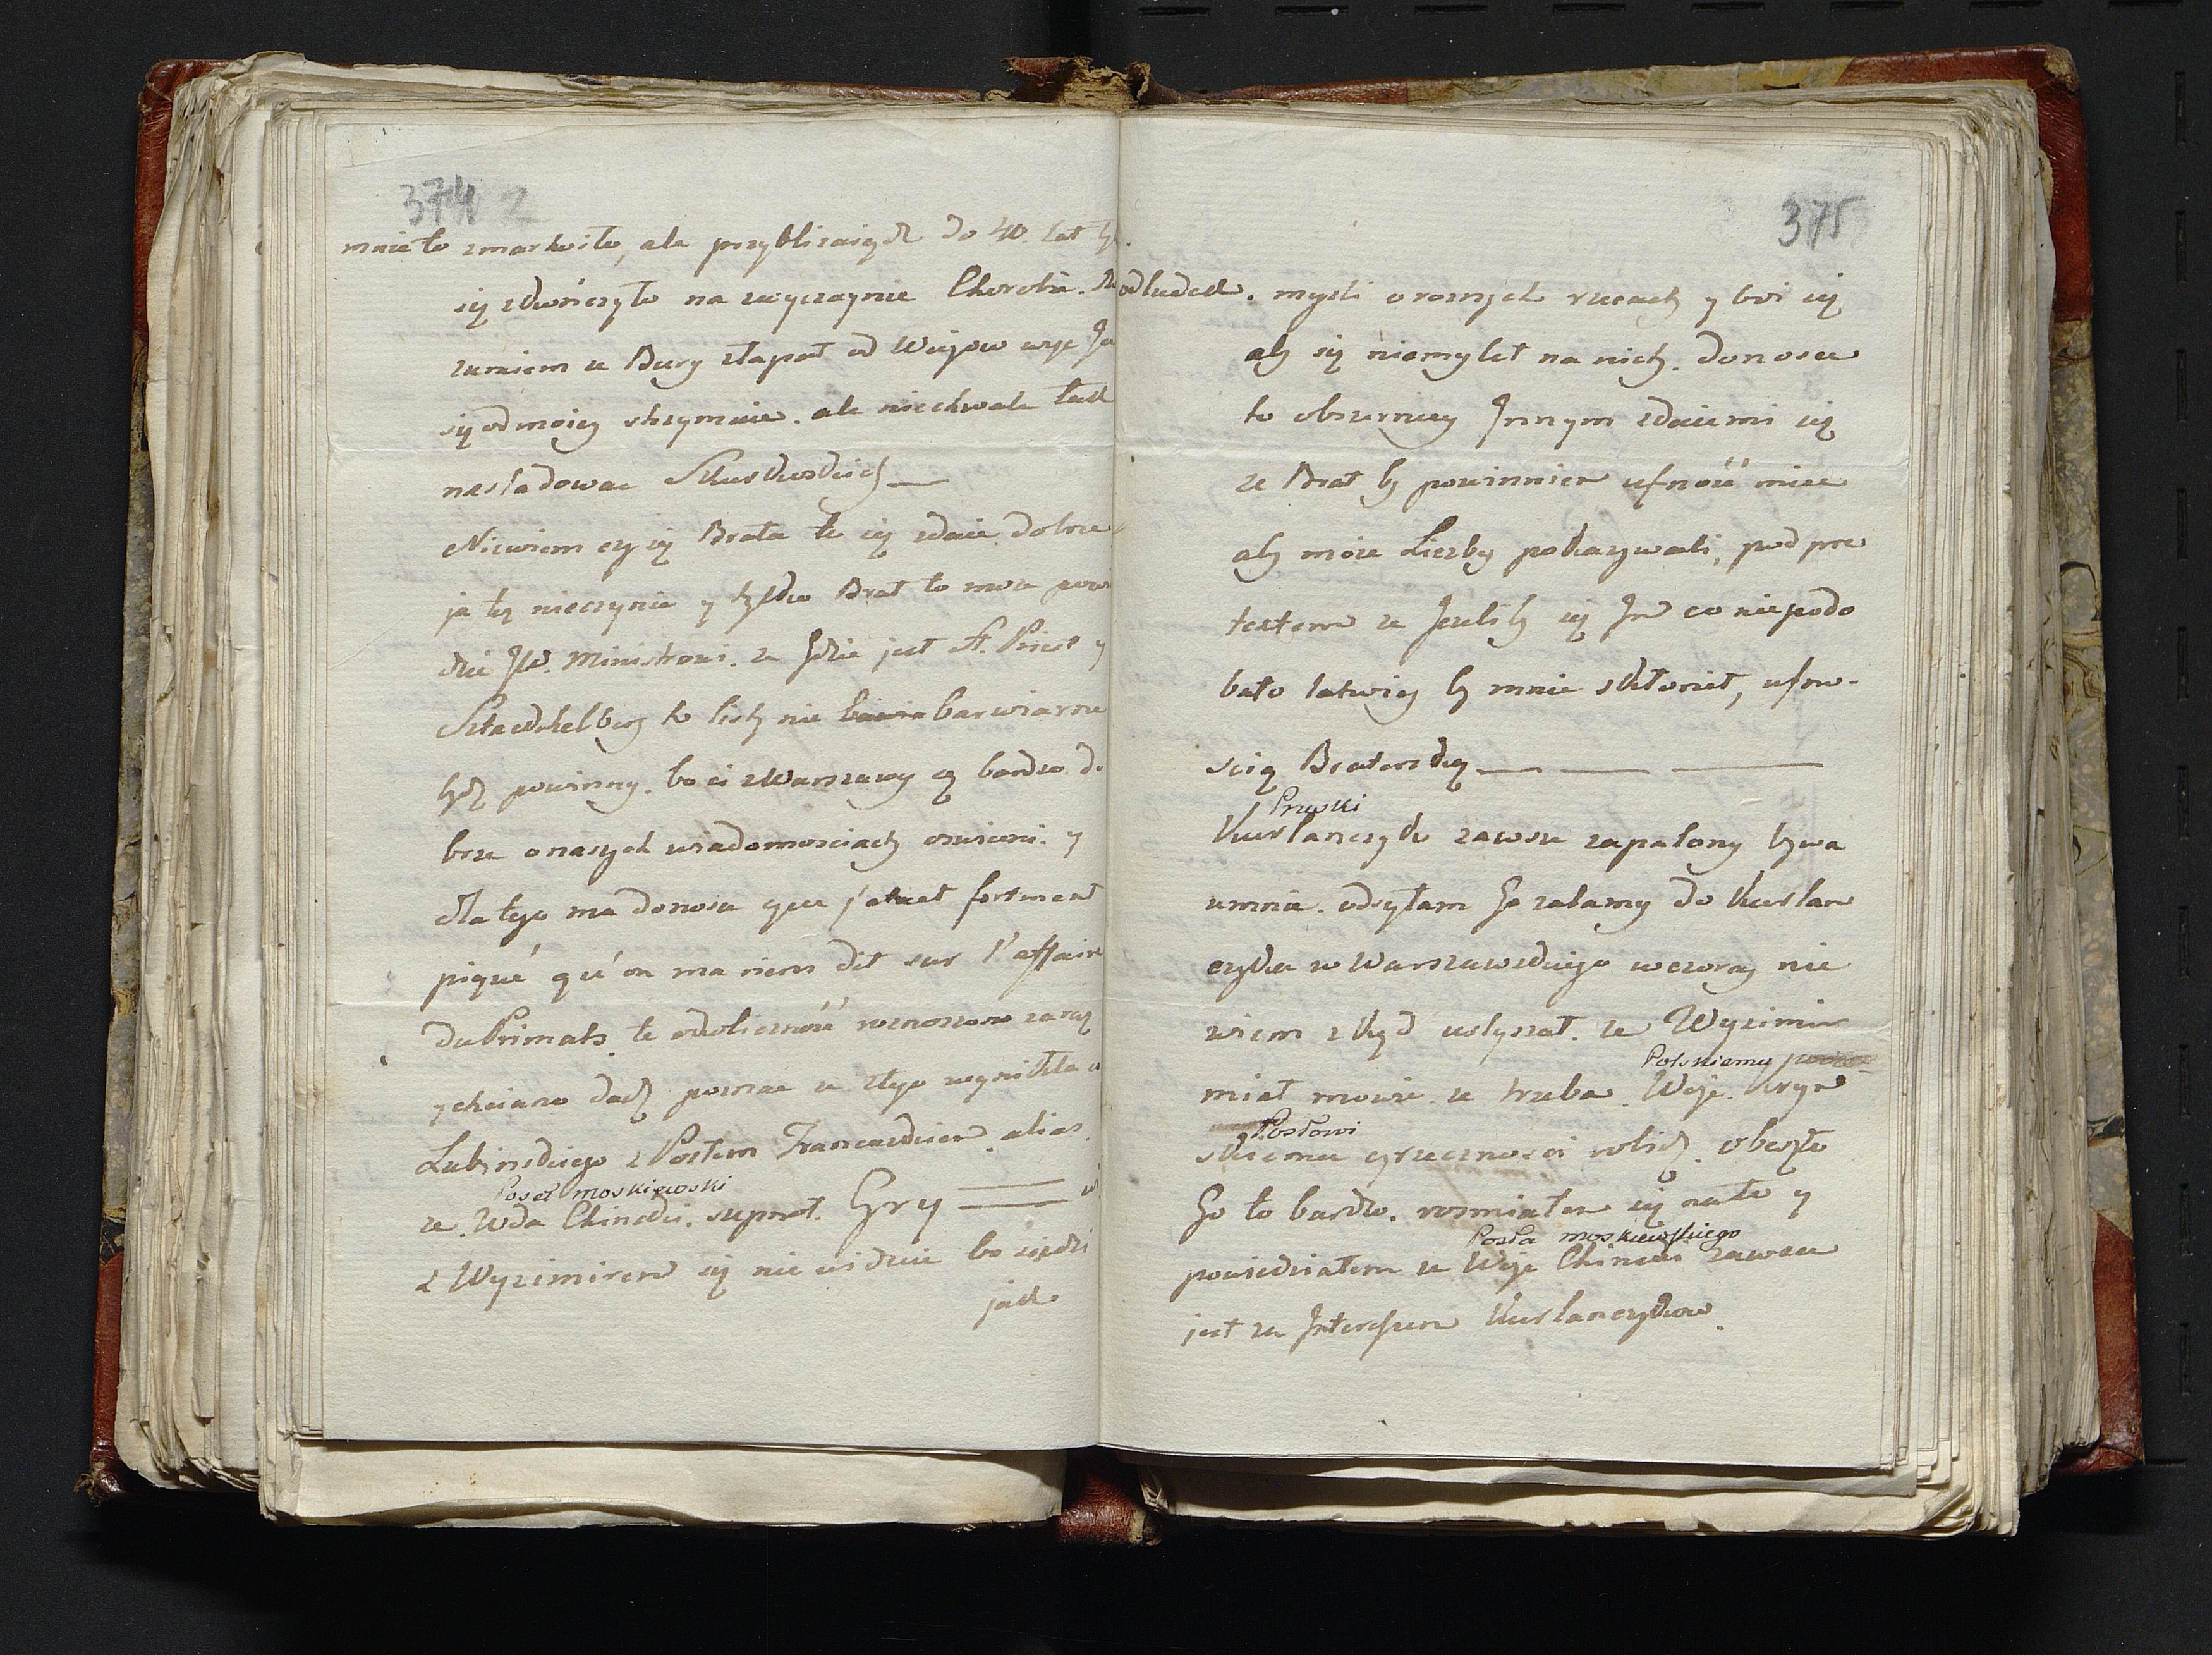 374 2
mnie to zmartwiło, ale przyblizaiąc do 40. lat
się skończyło na zwyczaynie Chorobie.
rumiem ze Bury złapał od Woyow wyc Ja
się od moiey strzymuie. ale niechwale tak
nasladowac
Niewiem czy się Brata to się zdaie dobrze
ja tę nieczynie y tylko Brat to moze powi
dzic JW. Ministrowi. ze gdzie jest St. Priest y
Sztackelberg to listy nie barwiarne
bydz powinny. bo ci z Warszawy są bardzo do
brze o naszych wiadomosciach oswieceni. y
dla tego ma donosze que j'etuet fortment
piqué qu'on ma riens dit sur l'affaire
du Primats te okolicznosć roznoszono zaraz
y chciano dadz poznac ze z tego wynikła
Lubinskiego z Posłem Francuskien alias
Poseł moskiewski
ze. Wda Chinski. Gry
z Wyzimiren się nie widuie bo siedzi
jak
375
odludek. mysli o roznych rzecach y boi się
aby się niemylet na nich. donosze
to obszerniey Jnnym zdaie mi się
ze Brat by powinnien ufnosć miec
aby moie Liczby pokazywali, pod pre
textem ze Jezeliby się Jm co niepodo
bało latwiey by mnie skłonieł, ufno-
scią Braterską
Pruski
Kurlanczyk zawsze zapalony bywa
umnie. odsyłam Go zalamy do Kurlan
czyka w Warszawskiego wczoray nie
wiem zkąd uslyszał. ze Wyzimir
Polskiemu
miał mowic ze trzeba. Woje.
Posłowi
skiemu grzecznosci robidz. obeszło
Go to bardzo. rosmiałem się nato y
Posła moskiewskiego
powiedziałem ze Woje Chinski zawsze
jest za Jnteressem Kurlanczykow.